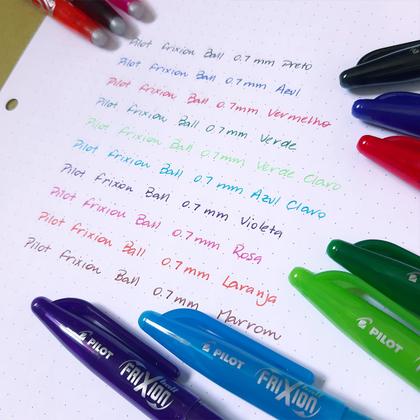 Pilot Frixion Ball 0.7mm Preto
Pilot Frixion Ball 0.7mm Azul
Pilot Frixion Ball 0.7mm Vermelho
Pilot Frixion Ball 0.7mm Verde
Pilot Frixion Ball 0.7mm Verde Claro
Pilot Frixion Ball 0.7mm Azul Claro
Pilot Frixion Ball 0.7mm Violeta
Pilot Frixion Ball 0.7mm Rosa
Pilot Frixion Ball 0.7mm Laranja
Pilot Frixion Ball 0.7mm Marrom
PILOT
PILOT FRIXION
PILOT FRIXION